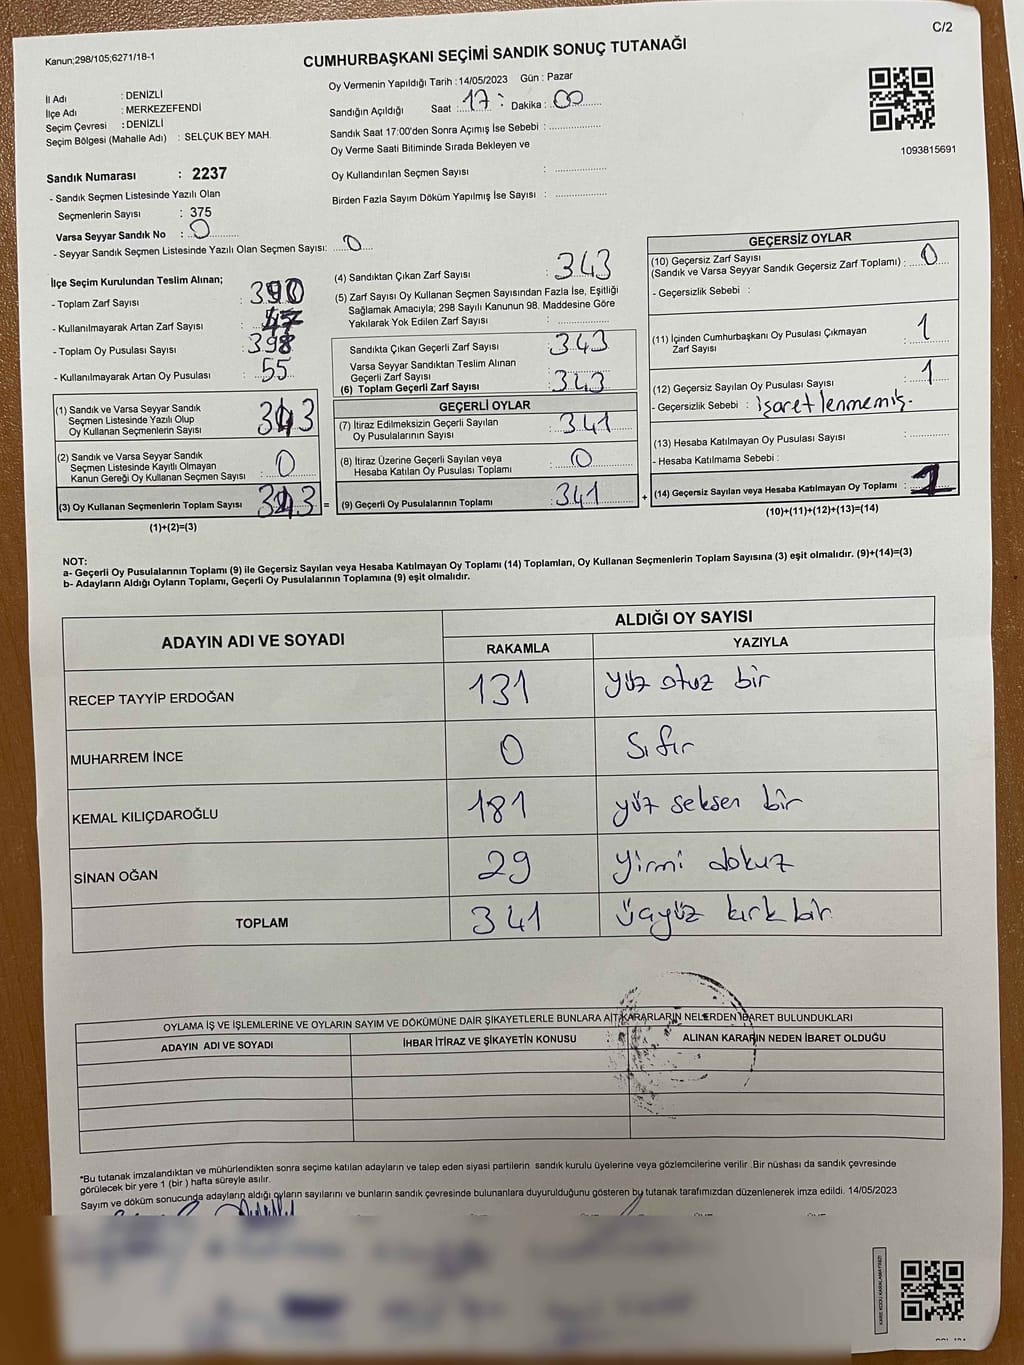 C/2
Kanun;298/105;6271/18-1
CUMHURBAŞKANI SEÇİMİ SANDIK SONUÇ TUTANAĞI
İl Adı : DENİZLİ
İlçe Adı : MERKEZEFENDİ
Seçim Çevresi : DENİZLİ
Seçim Bölgesi (Mahalle Adı) : SELÇUK BEY MAH.
Oy Vermenin Yapıldığı Tarih : 14/05/2023 Gün : Pazar
Sandığın Açıldığı Saat : 17 : Dakika : 00
Sandık Saat 17:00'den Sonra Açımış İse Sebebi :
Oy Verme Saati Bitiminde Sırada Bekleyen ve
Oy Kullandırılan Seçmen Sayısı :
Birden Fazla Sayım Döküm Yapılmış İse Sayısı :
1093815691
Sandık Numarası : 2237
- Sandık Seçmen Listesinde Yazılı Olan
Seçmenlerin Sayısı : 375
Varsa Seyyar Sandık No : 0
- Seyyar Sandık Seçmen Listesinde Yazılı Olan Seçmen Sayısı: 0
İlçe Seçim Kurulundan Teslim Alınan;
- Toplam Zarf Sayısı :
- Kullanılmayarak Artan Zarf Sayısı : 47
- Toplam Oy Pusulası Sayısı : 398
- Kullanılmayarak Artan Oy Pusulası : 55
(1) Sandık ve Varsa Seyyar Sandık
Seçmen Listesinde Yazılı Olup
Oy Kullanan Seçmenlerin Sayısı : 343
(2) Sandık ve Varsa Seyyar Sandık
Seçmen Listesinde Kayıtlı Olmayan
Kanun Gereği Oy Kullanan Seçmen Sayısı : 0
(3) Oy Kullanan Seçmenlerin Toplam Sayısı : 343 =
(1)+(2)=(3)
(4) Sandıktan Çıkan Zarf Sayısı : 343
(5) Zarf Sayısı Oy Kullanan Seçmen Sayısından Fazla İse, Eşitliği
Sağlamak Amacıyla; 298 Sayılı Kanunun 98. Maddesine Göre
Yakılarak Yok Edilen Zarf Sayısı :
Sandıkta Çıkan Geçerli Zarf Sayısı : 343
Varsa Seyyar Sandıktan Teslim Alınan
Geçerli Zarf Sayısı :
(6) Toplam Geçerli Zarf Sayısı : 343
GEÇERLİ OYLAR
(7) İtiraz Edilmeksizin Geçerli Sayılan
Oy Pusulalarının Sayısı : 341
(8) İtiraz Üzerine Geçerli Sayılan veya
Hesaba Katılan Oy Pusulası Toplamı : 0
(9) Geçerli Oy Pusulalarının Toplamı : 341 +
GEÇERSİZ OYLAR
(10) Geçersiz Zarf Sayısı
(Sandık ve Varsa Seyyar Sandık Geçersiz Zarf Toplamı) : 0
- Geçersizlik Sebebi :
(11) İçinden Cumhurbaşkanı Oy Pusulası Çıkmayan
Zarf Sayısı : 1
(12) Geçersiz Sayılan Oy Pusulası Sayısı : 1
- Geçersizlik Sebebi : işaretlenmemiş.
(13) Hesaba Katılmayan Oy Pusulası Sayısı :
- Hesaba Katılmama Sebebi :
(14) Geçersiz Sayılan veya Hesaba Katılmayan Oy Toplamı :
(10)+(11)+(12)+(13)=(14)
NOT:
a- Geçerli Oy Pusulalarının Toplamı (9) ile Geçersiz Sayılan veya Hesaba Katılmayan Oy Toplamı (14) Toplamları, Oy Kullanan Seçmenlerin Toplam Sayısına (3) eşit olmalıdır. (9)+(14)=(3)
b- Adayların Aldığı Oyların Toplamı, Geçerli Oy Pusulalarının Toplamına (9) eşit olmalıdır.
ADAYIN ADI VE SOYADI
ALDIĞI OY SAYISI
RAKAMLA YAZIYLA
RECEP TAYYİP ERDOĞAN 131 yüz otuz bir
MUHARREM İNCE 0 Sıfır
KEMAL KILIÇDAROĞLU 181 yüz seksen bir
SİNAN OĞAN 29 yirmi dokuz
TOPLAM 341 üçyüz kırk bir
OYLAMA İŞ VE İŞLEMLERİNE VE OYLARIN SAYIM VE DÖKÜMÜNE DAİR ŞİKAYETLERLE BUNLARA AİT KARARLARIN NELERDEN İBARET BULUNDUKLARI
ADAYIN ADI VE SOYADI İHBAR İTİRAZ VE ŞİKAYETİN KONUSU ALINAN KARARIN NEDEN İBARET OLDUĞU
*Bu tutanak imzalandıktan ve mühürlendikten sonra seçime katılan adayların ve talep eden siyasi partilerin sandık kurulu üyelerine veya gözlemcilerine verilir .Bir nüshası da sandık çevresinde
görülecek bir yere 1 (bir ) hafta süreyle asılır.
Sayım ve döküm sonucunda adayların aldığı oyların sayılarını ve bunların sandık çevresinde bulunanlara duyurulduğunu gösteren bu tutanak tarafımızdan düzenlenerek imza edildi. 14/05/2023